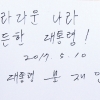 라다운 나라
든한 대통령!
2017. 5. 10
대통령 문재인